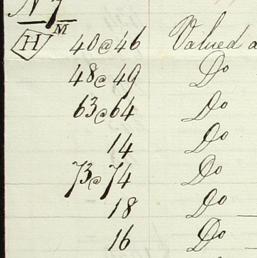 N 7
M
H 40@46 Valued a
48@49 Do
63@64 Do
14 Do
73@74 Do
18 Do
16 Do